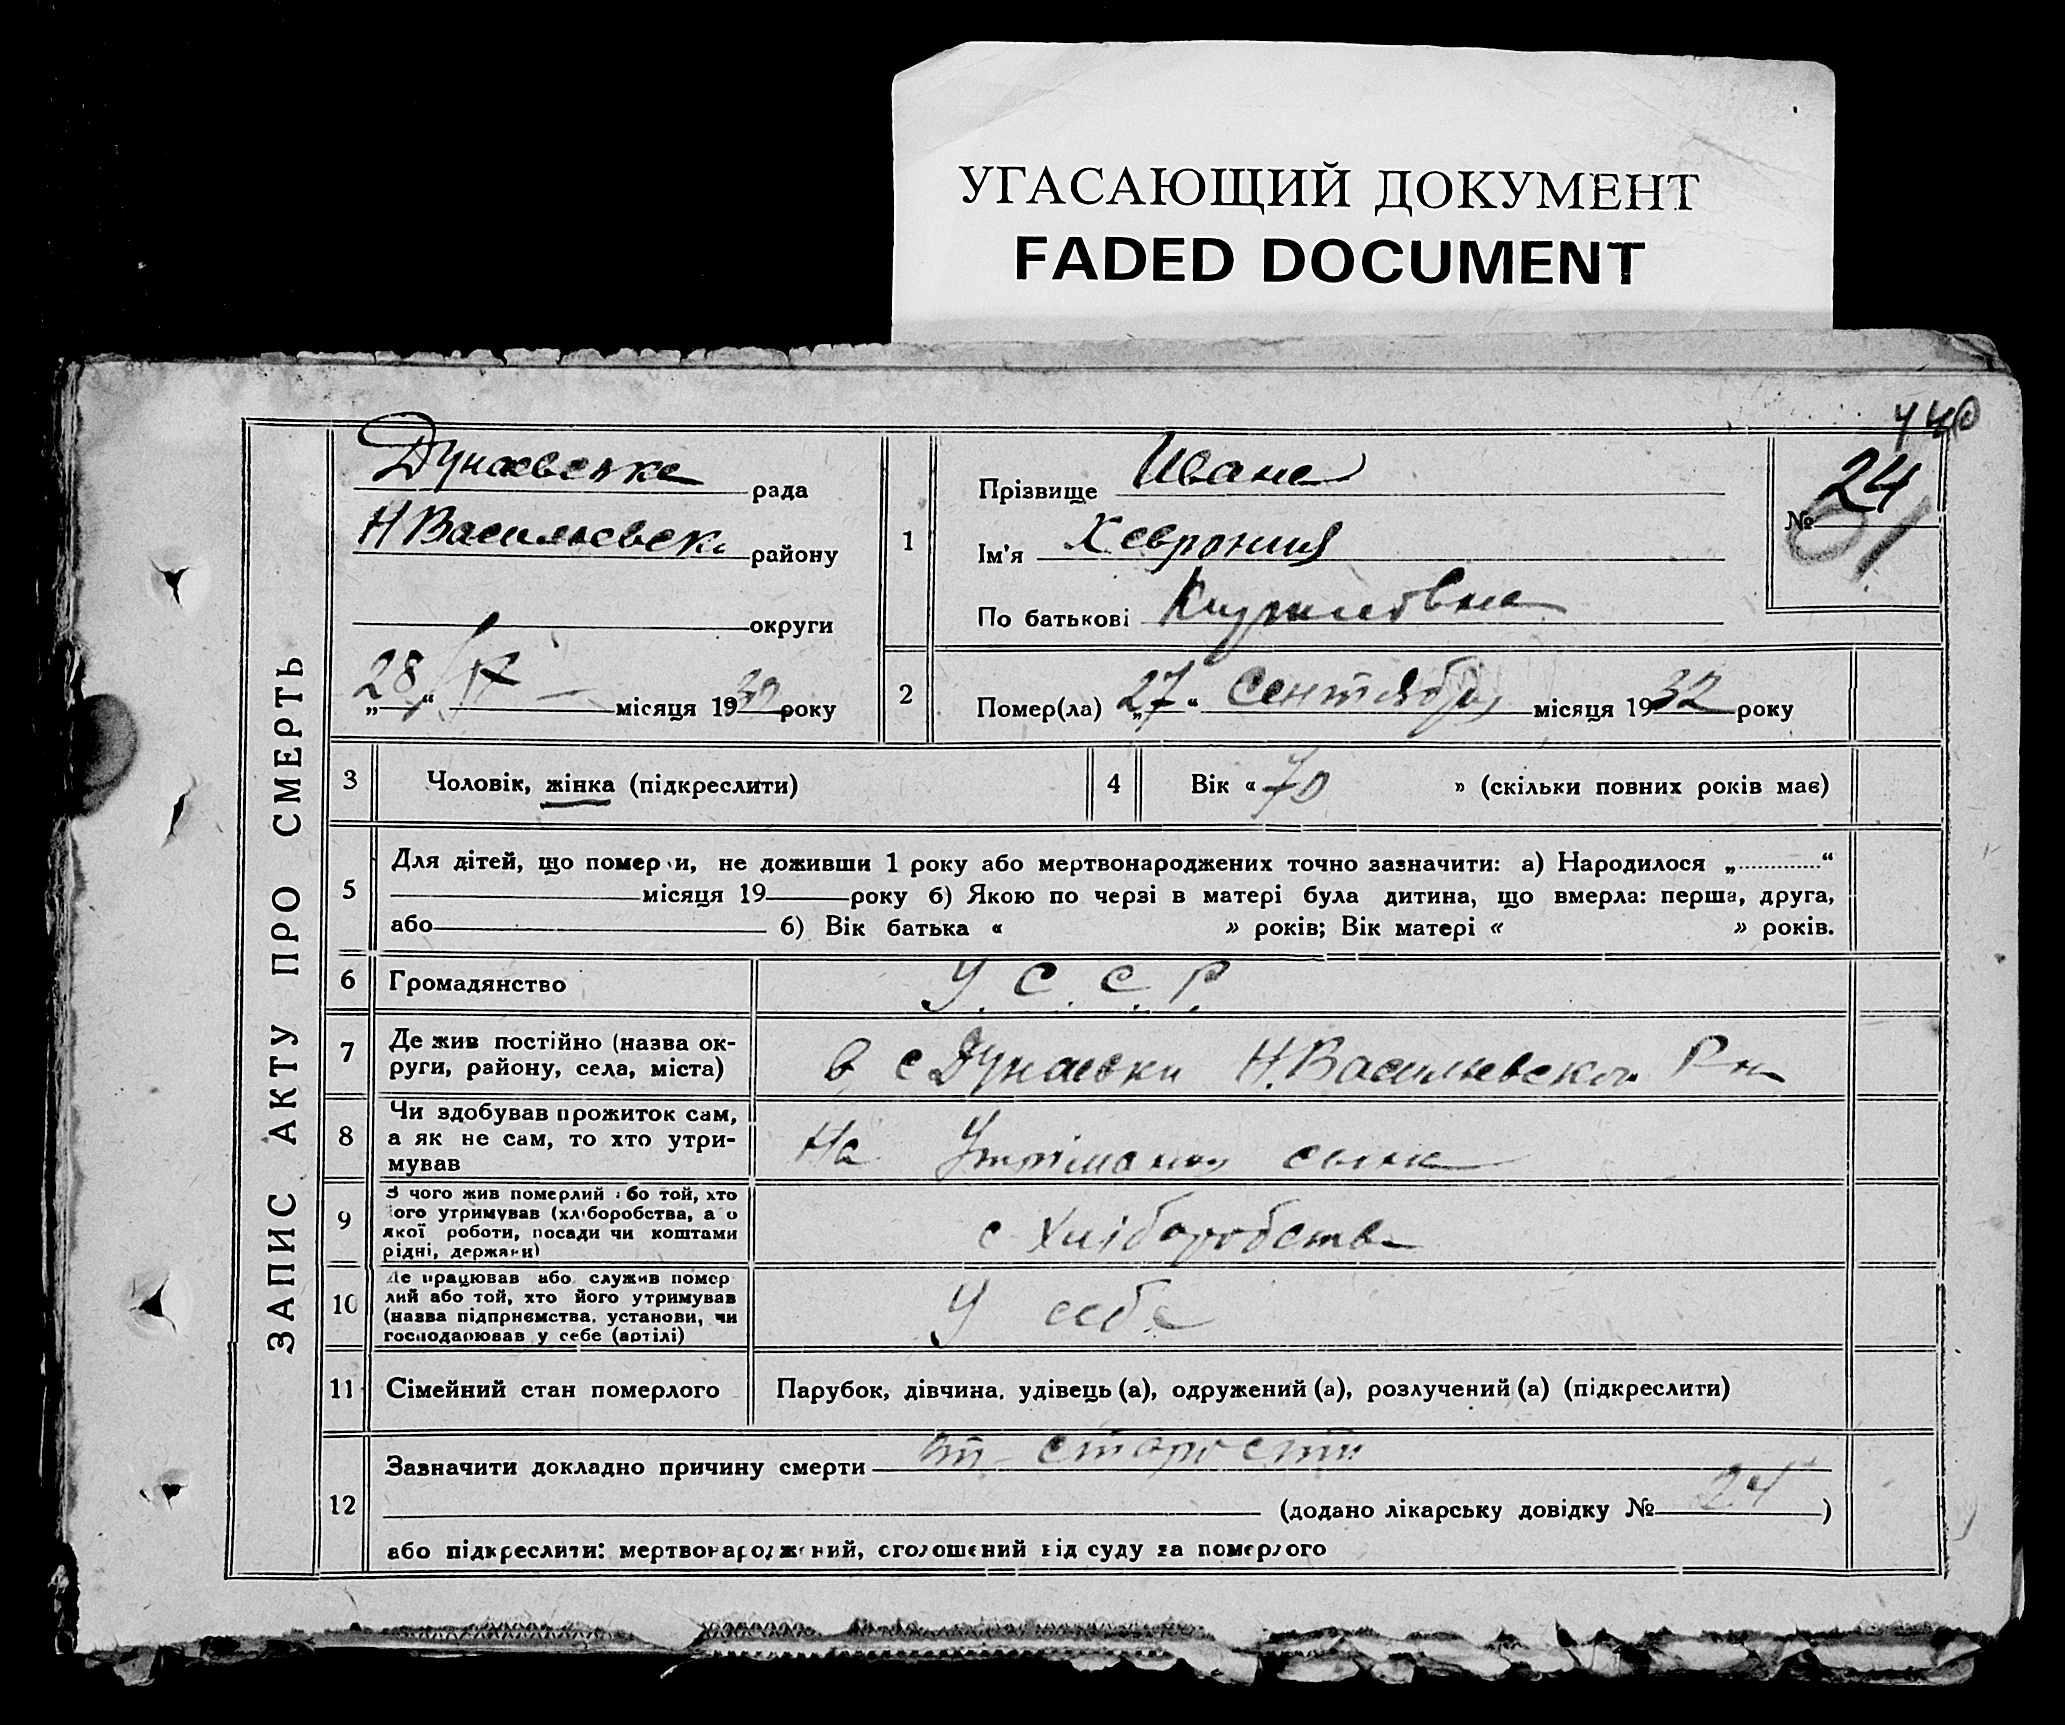 УГАСАЮЩИЙ ДОКУМЕНТ
FADED DOCUMENT
440
ЗАПИС АКТУ ПРО СМЕРТЬ
Дунаевска рада
Н Васильевск району
округи
„28“ IX місяця 1932 року
1
Прізвище Иване
Ім'я Хеврония
По батькові Кириловна
№ 24
61
2
Помер(ла) „27“ Сентября місяця 1932 року
3 Чоловік, жінка (підкреслити)
4 Вік « 70 » (скільки повних років має)
5 Для дітей, що померли, не доживши 1 року або мертвонароджених точно зазначити: а) Народилося „ “
місяця 19 року б) Якою по черзі в матері була дитина, що вмерла: перша, друга,
або б) Вік батька « » років; Вік матері « » років.
6 Громадянство У. С. С. Р.
7 Де жив постійно (назва ок-
руги, району, села, міста)
в с Дунаевки Н.Васильевского Рн
8 Чи здобував прожиток сам,
а як не сам, то хто утри-
мував
На Утриманию сына
9 З чого жив померлий або той, хто
його утримував (хліборобства, а о
якої роботи, посади чи коштами
рідні, держави)
с Хліборобства
10 Де працював або служив помер
лий або той, хто його утримував
(назва підприємства, установи, чи
господарював у себе (артілі)
У себе
11 Сімейний стан померлого Парубок, дівчина, удівець (а), одружений (а), розлучений (а) (підкреслити)
12 Зазначити докладно причину смерти от старости
(додано лікарську довідку № 24 )
або підкреслити: мертвонароджений, оголошений від суду за померлого